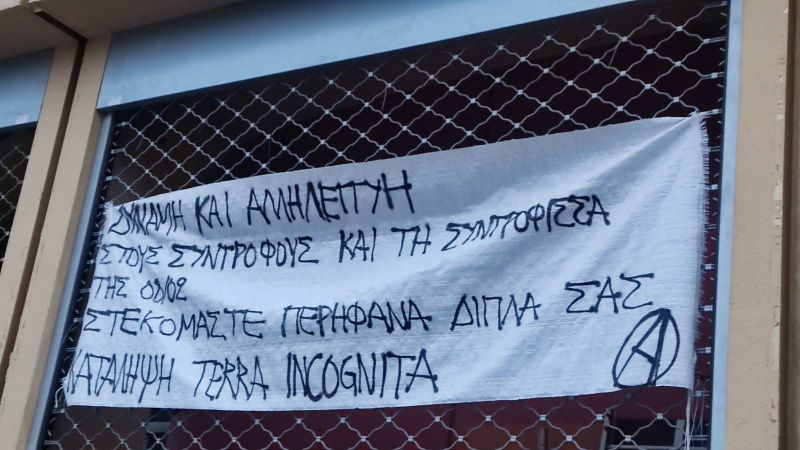 ΔΥΝΑΜΗ ΚΑΙ ΑΛΛΗΛΕΓΓΥΗ
ΣΤΟΥΣ ΣΥΝΤΡΟΦΟΥΣ ΚΑΙ ΤΗ ΣΥΝΤΡΟΦΙΣΣΑ
ΤΗΣ
ΣΤΕΚΟΜΑΣΤΕ ΠΕΡΗΦΑΝΑ ΔΙΠΛΑ ΣΑΣ
ΚΑΤΑΛΗΨΗ TERRA INCOGNITA